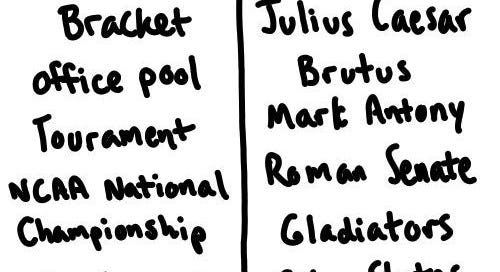 Bracket
office pool
Tourament
NCAA National
Championship
Julius Caesar
Brutus
Mark Antony
Roman Senate
Gladiators